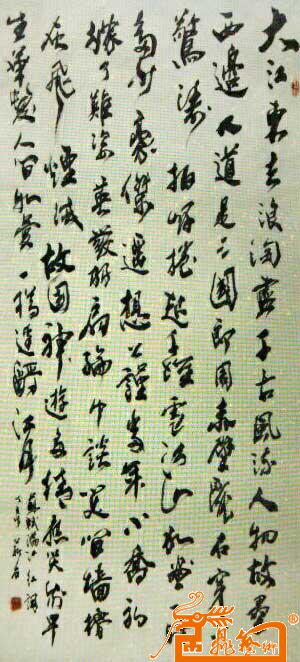 大江東去浪淘盡千古風流人物故壘
西邊人道是三國郎周赤壁亂石穿
驚濤拍岸捲起千堆雪江山如畫一時
多少豪傑遙想公謹當年小喬初
嫁了雄姿英發羽扇綸巾談笑間檣櫓
灰飛煙滅故國神遊多情應笑我早
生華髮人間如夢一樽還酹江月
蘇軾滿江紅詞